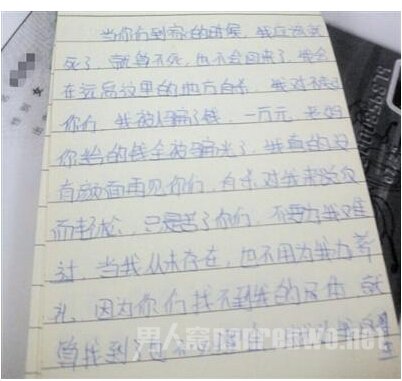 当你看到家的时候，我应该说
死了，就算不死，也不会回来了，我会
在远离这里的地方自杀，我对不起
你们，我被人骗了钱，一万元，老妈
你给的钱全被骗光了，我真的没
有颜面再见你们，自杀对我来说仅
而轻松，只是苦了你们，不要为我难
过，当我从未存在，也不用为我办葬
礼，因为你们找不到我的尸体，就
算找到了也不
男人窝 nanrenwo.net